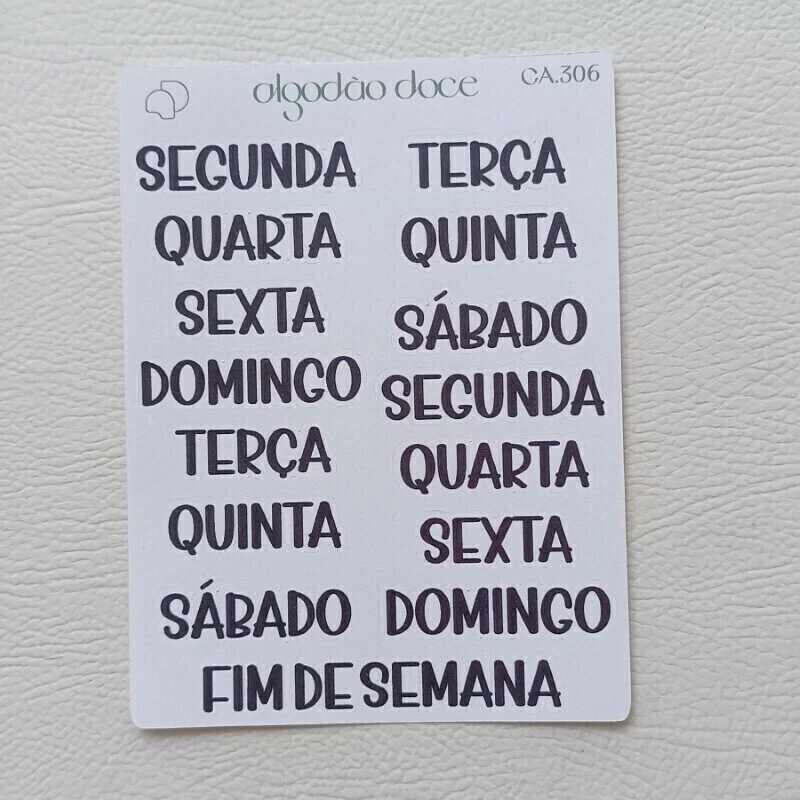 algodão doce CA.306
SEGUNDA TERÇA
QUARTA QUINTA
SEXTA SÁBADO
DOMINGO SEGUNDA
TERÇA QUARTA
QUINTA SEXTA
SÁBADO DOMINGO
FIM DE SEMANA